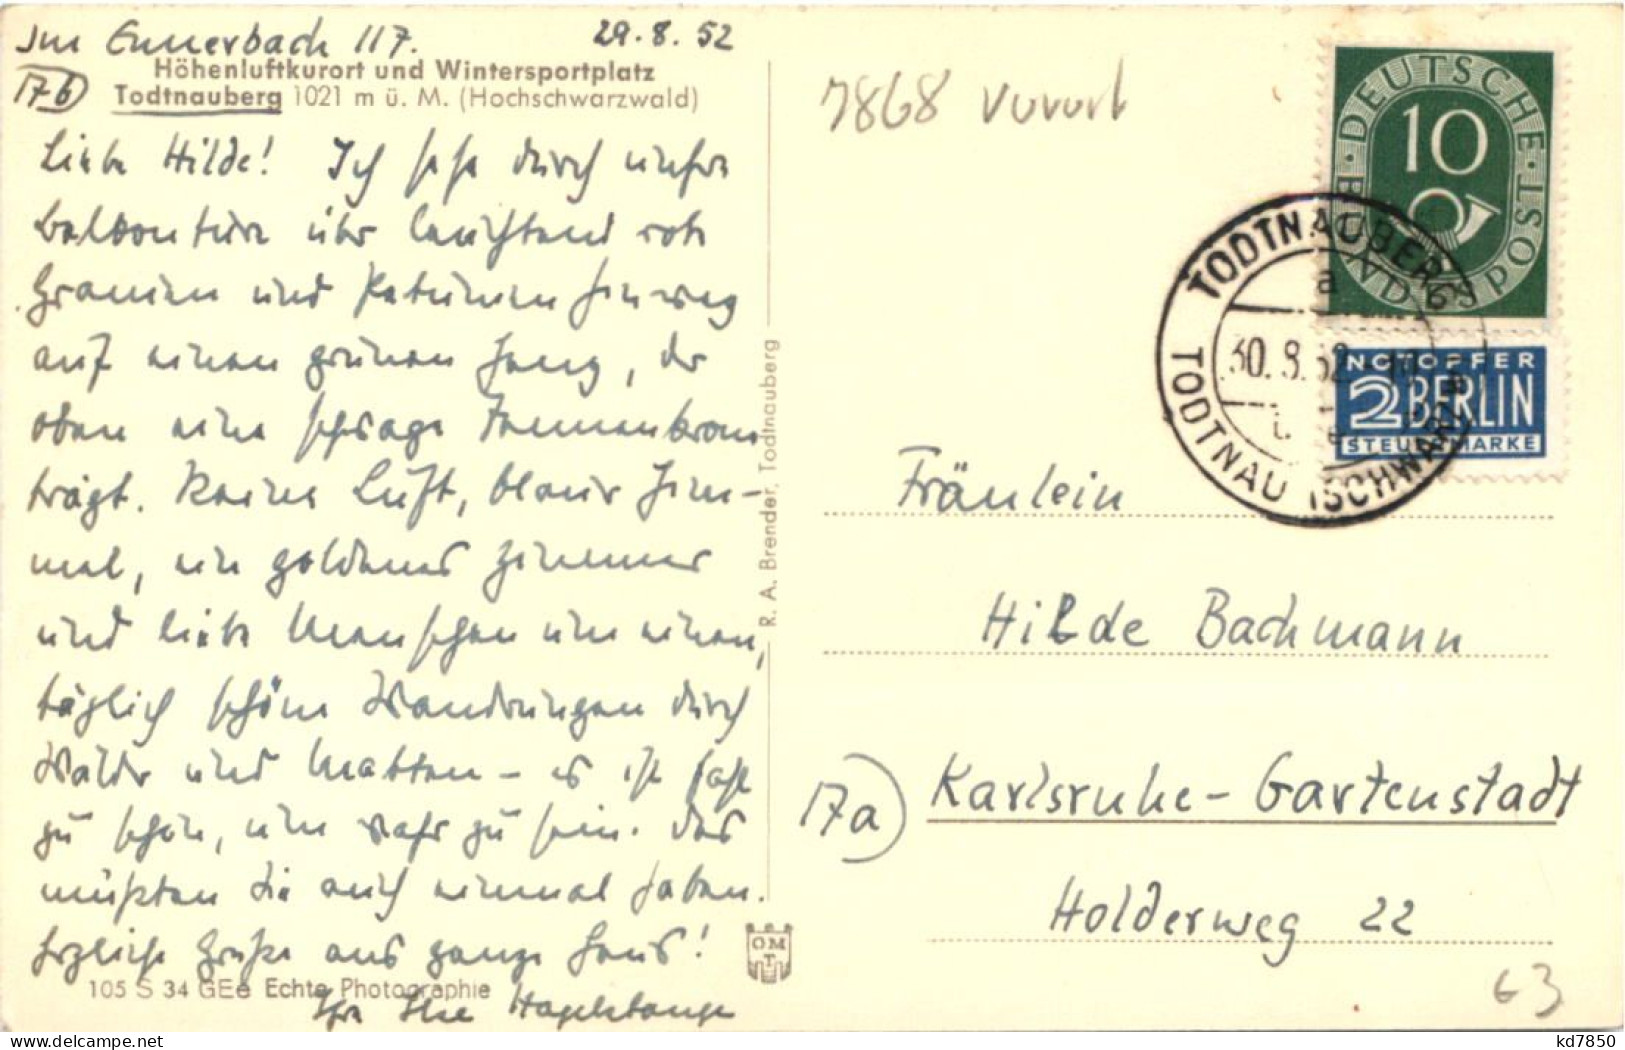 Im Ennerbach 117. 29.8.52
17b
Höhenluftkurort und Wintersportplatz
Todtnauberg 1021 m ü. M. (Hochschwarzwald)
Liebe Hilde! Ich sehe durch unsere
Balkontüre über leuchtend rote
Geranien und Petunien hinweg
auf einen grünen Hang, der
oben eine schräge Tannenkrone
trägt. Reine Luft, blauer Him-
mel, ein goldenes Zimmer
und liebe Menschen um einen,
täglich schöne Wanderungen durch
Wälder und Matten – es ist fast
zu schön, um wahr zu sein. Das
müßten Sie auch einmal haben.
Herzliche Grüße aus ganzem Haus!
Ihre Ilse Hagelstange
105 S 34 GEe Echte Photographie
R. A. Brender, Todtnauberg
OMT
7868 Vorort
DEUTSCHE BUNDESPOST
10
NOTOPFER
2 BERLIN
STEUERMARKE
TODTNAUBERG
a
30.8.52
TODTNAU (SCHWARZW)
Fräulein
Hilde Bachmann
17a Karlsruhe-Gartenstadt
Holderweg 22
63
kd7850